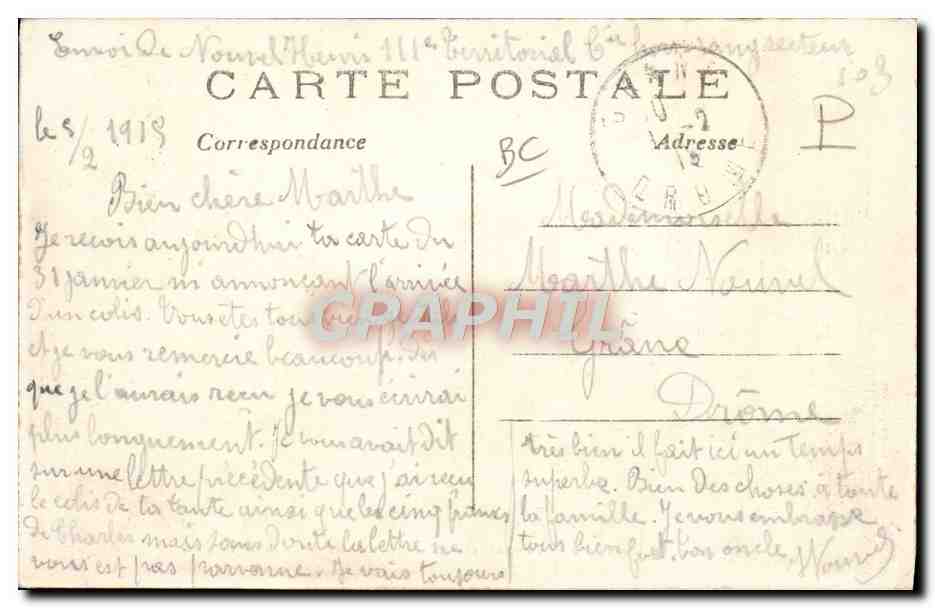 Envoi de Nouvel Henri 111e Territorial Cie secteur
103
CARTE POSTALE
le 5/2 1915
Correspondance
Adresse
BC
P
Bien chère Marthe
Je reçois aujourd'hui ta carte du
31 janvier m'annonçant l'arrivée
d'un colis. Vous êtes tous bien
et je vous remercie beaucoup. Dès
que je l'aurais reçu je vous écrirai
plus longuement. Je vous avait dit
sur une lettre précédente que j'ai reçu
le colis de ta tante ainsi que les cinq francs
de Charles mais sans doute la lettre ne
vous est pas parvenue. Je vais toujours
très bien il fait ici un temps
superbe. Bien des choses à toute
la famille. Je vous embrasse
tous bien fort. ton oncle
Nouvel
Mademoiselle
Marthe Nouvel
Grâne
Drôme
DROME
CPAPHIL